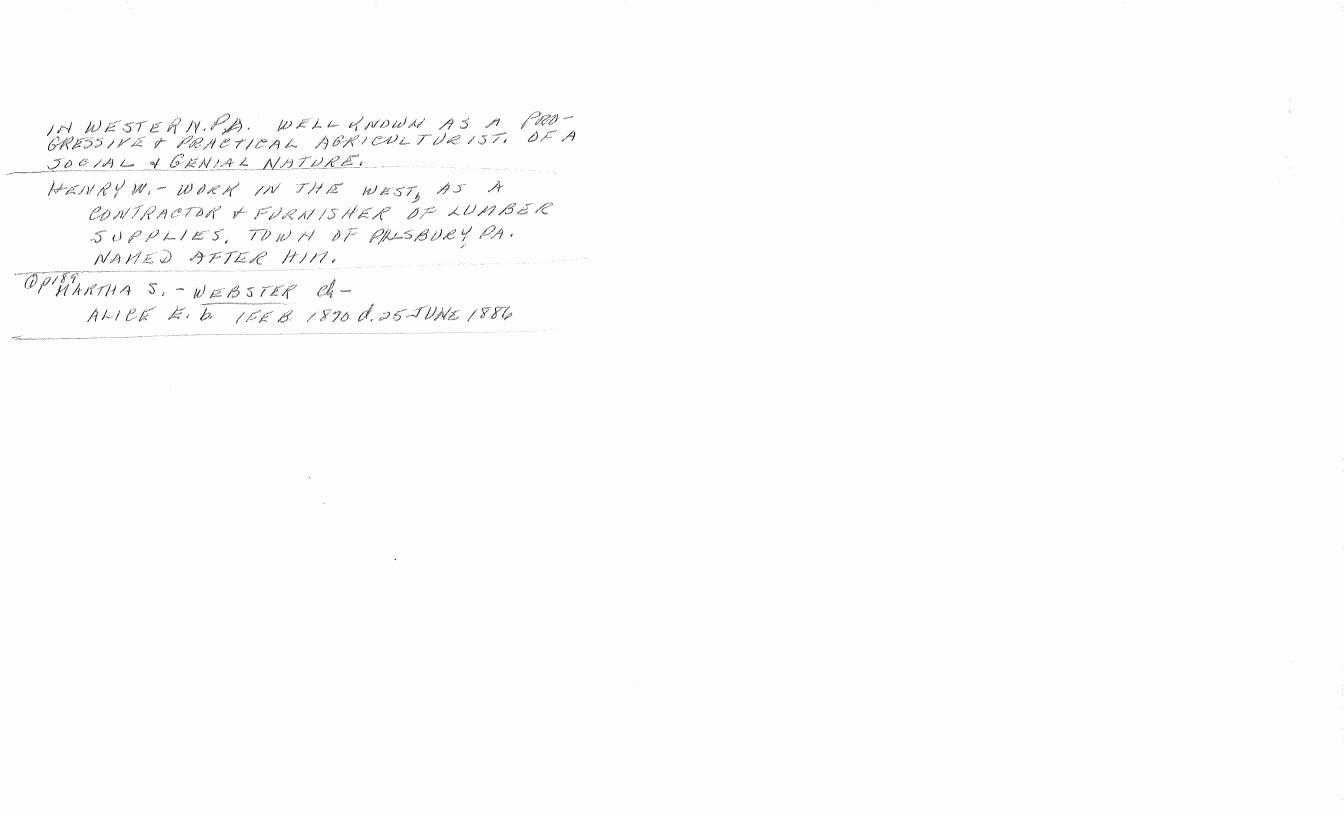 IN WESTERN.PA. WELL KNOWN AS A PRO-
GRESSIVE & PRACTICAL AGRICULTURIST. OF A
SOCIAL & GENIAL NATURE.
HENRY W. - WORK IN THE WEST, AS A
CONTRACTOR & FURNISHER OF LUMBER
SUPPLIES. TOWN OF PILSBURY, PA.
NAMED AFTER HIM.
① P189
MARTHA S. - WEBSTER ch -
ALICE E. b. 1 FEB 1870 d. 25 JUNE 1886